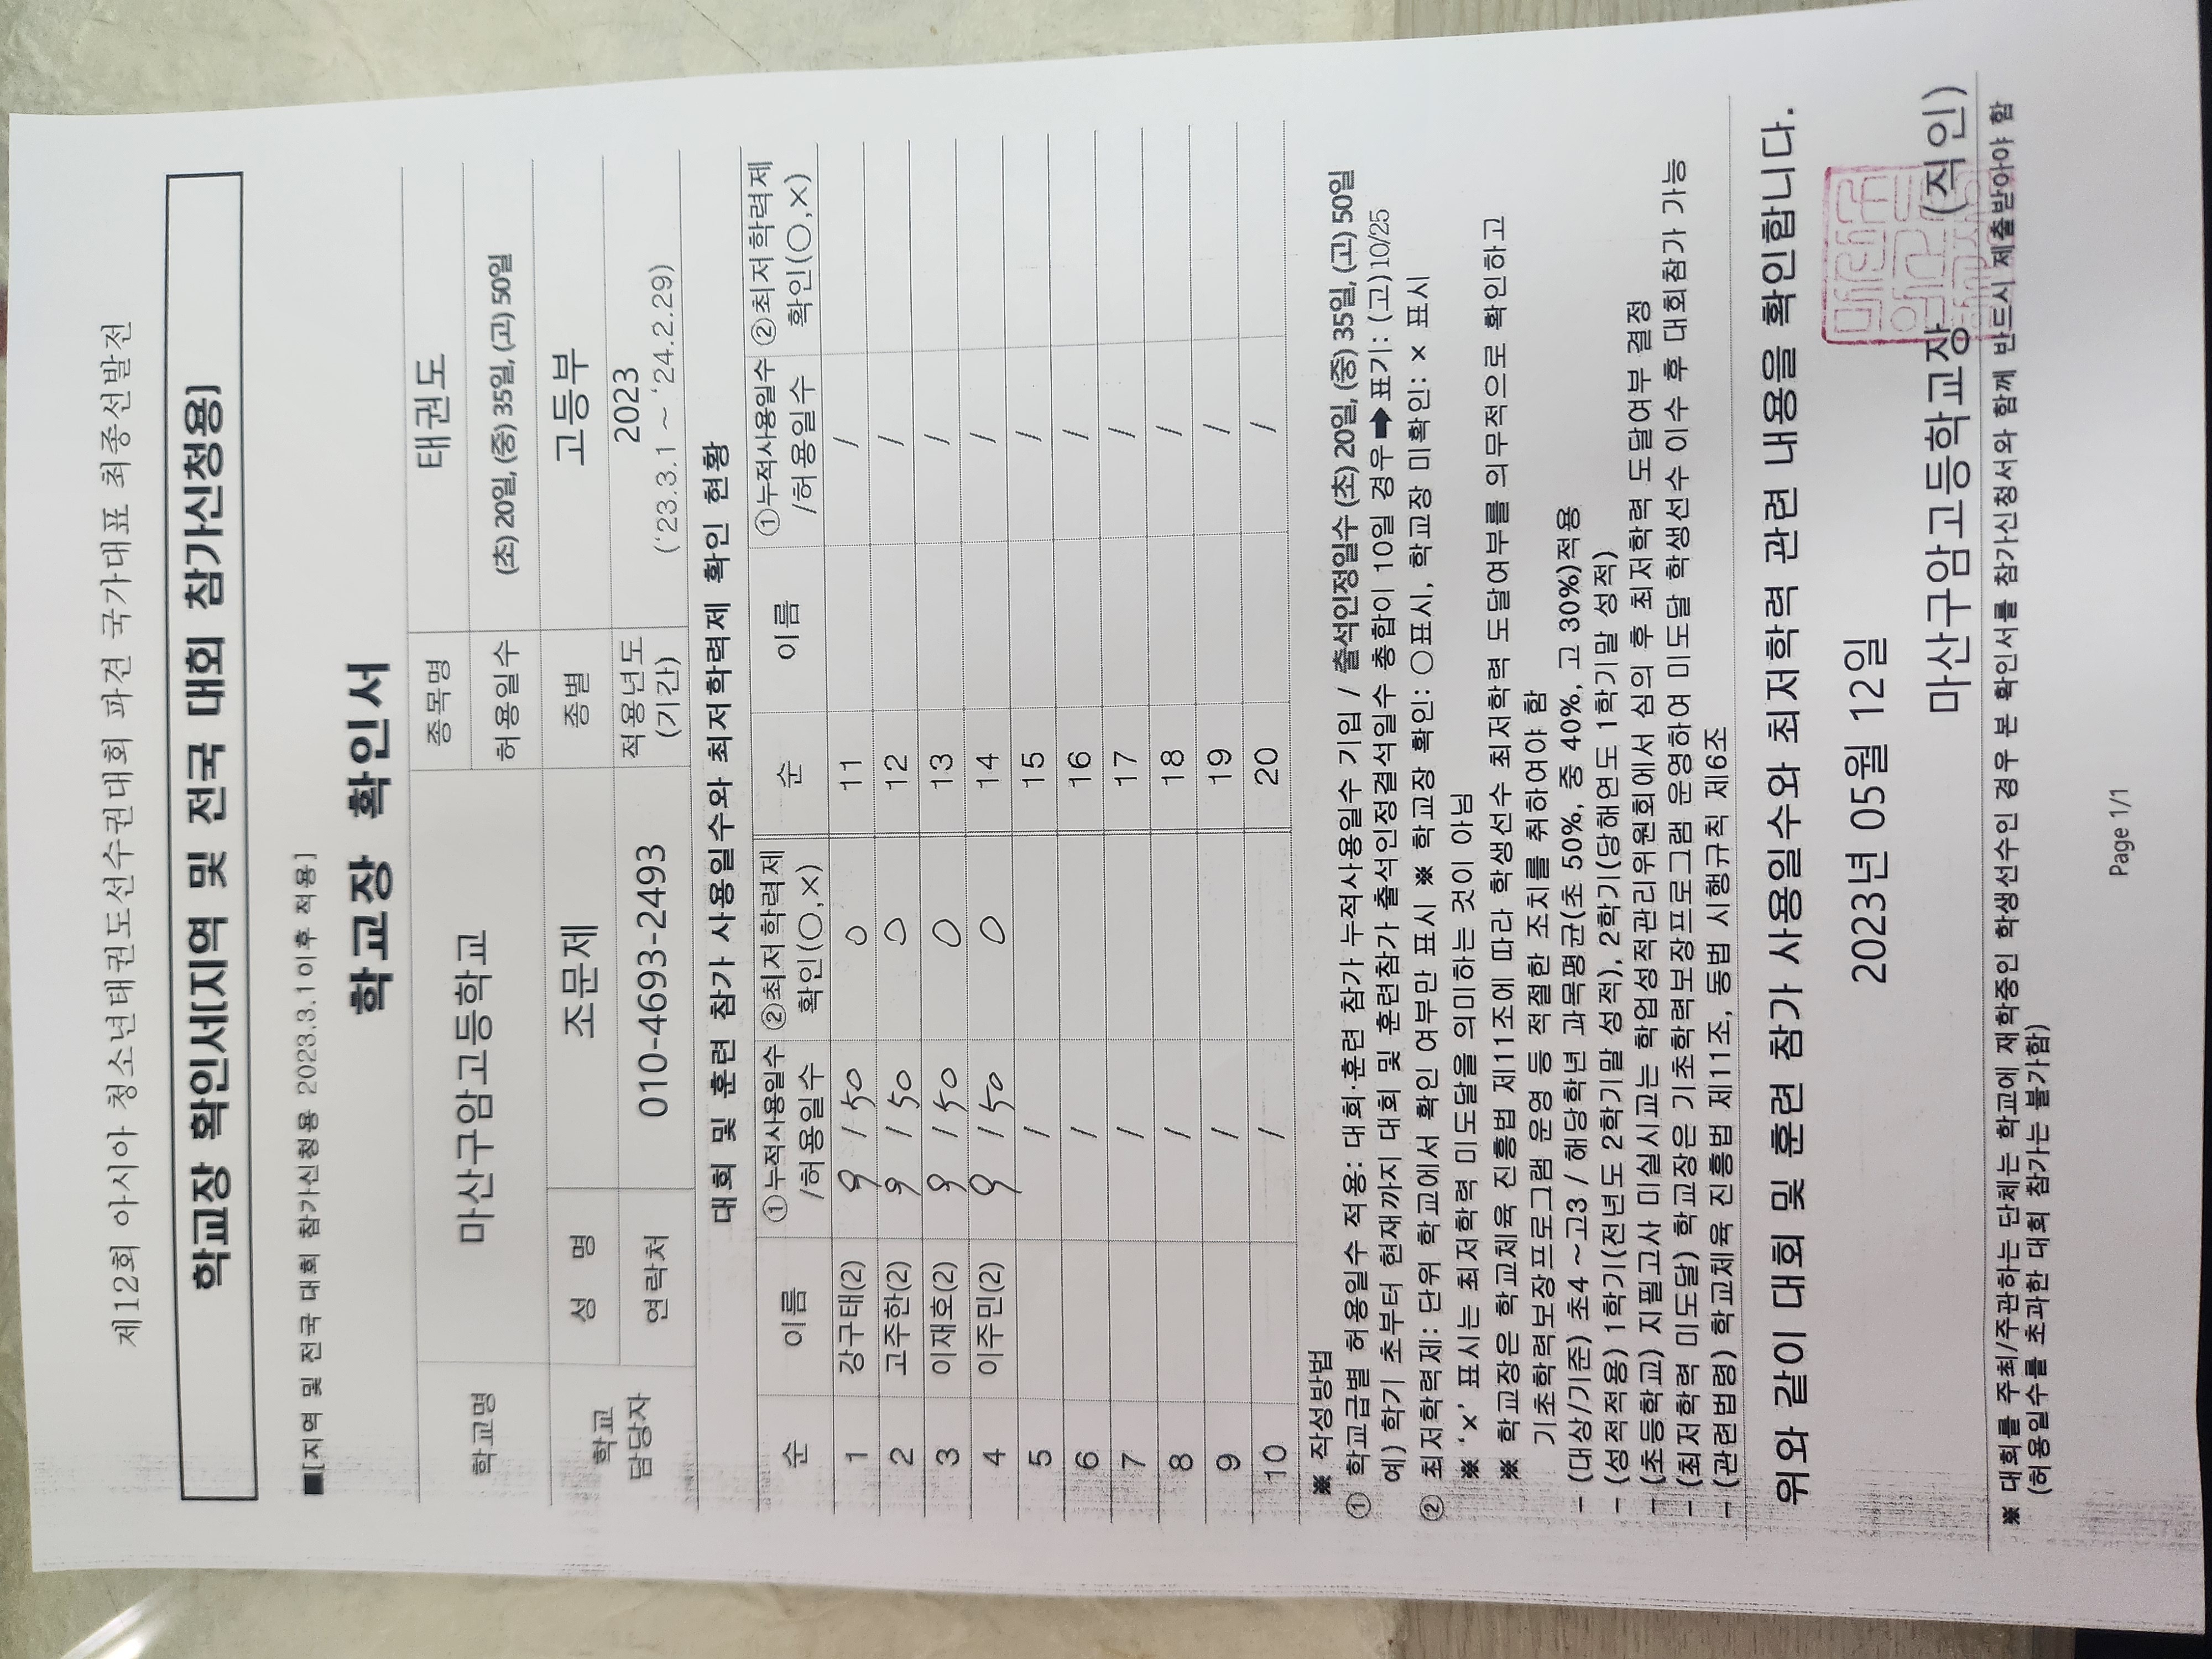 제12회 아시아 청소년태권도선수권대회 파견 국가대표 최종선발전
학교장 확인서(지역 및 전국 대회 참가신청용)
■[지역 및 전국 대회 참가신청용 2023.3.1이후 적용]
학교장 확인서
학교명 마산구암고등학교 종목명 태권도
허용일수 (초) 20일, (중) 35일, (고) 50일
학교 담당자 성 명 조문제 종별 고등부
연락처 010-4693-2493 적용년도 (기간) 2023 ('23.3.1 ~ '24.2.29)
대회 및 훈련 참가 사용일수와 최저학력제 확인 현황
순 이름 ①누적사용일수 /허용일수 ②최저학력제 확인(○,×) 순 이름 ①누적사용일수 /허용일수 ②최저학력제 확인(○,×)
1 강구태(2) 9 / 50 ○ 11 /
2 고주한(2) 9 / 50 ○ 12 /
3 이재호(2) 9 / 50 ○ 13 /
4 이주민(2) 9 / 50 ○ 14 /
5 / 15 /
6 / 16 /
7 / 17 /
8 / 18 /
9 / 19 /
10 / 20 /
※ 작성방법
① 학교급별 허용일수 적용: 대회·훈련 참가 누적사용일수 기입 / 출석인정일수 (초) 20일, (중) 35일, (고) 50일
예) 학기 초부터 현재까지 대회 및 훈련참가 출석인정결석일수 총합이 10일 경우 ➡ 표기: (고) 10/25
② 최저학력제: 단위 학교에서 확인 여부만 표시 ※ 학교장 확인: ○표시, 학교장 미확인: × 표시
※ '×' 표시는 최저학력 미도달을 의미하는 것이 아님
※ 학교장은 학교체육 진흥법 제11조에 따라 학생선수 최저학력 도달여부를 의무적으로 확인하고
기초학력보장프로그램 운영 등 적절한 조치를 취하여야 함
- (대상/기준) 초4 ~ 고3 / 해당학년 과목평균(초 50%, 중 40%, 고 30%)적용
- (성적적용) 1학기(전년도 2학기말 성적), 2학기(당해연도 1학기말 성적)
- (초등학교) 지필고사 미실시교는 학업성적관리위원회에서 심의 후 최저학력 도달여부 결정
- (최저학력 미도달) 학교장은 기초학력보장프로그램 운영하여 미도달 학생선수 이수 후 대회참가 가능
- (관련법령) 학교체육 진흥법 제11조, 동법 시행규칙 제6조
위와 같이 대회 및 훈련 참가 사용일수와 최저학력 관련 내용을 확인합니다.
2023년 05월 12일
마산구암고등학교장 (직인)
※ 대회를 주최/주관하는 단체는 학교에 재학중인 학생선수인 경우 본 확인서를 참가신청서와 함께 반드시 제출받아야 함
(허용일수를 초과한 대회 참가는 불가함)
Page 1/1